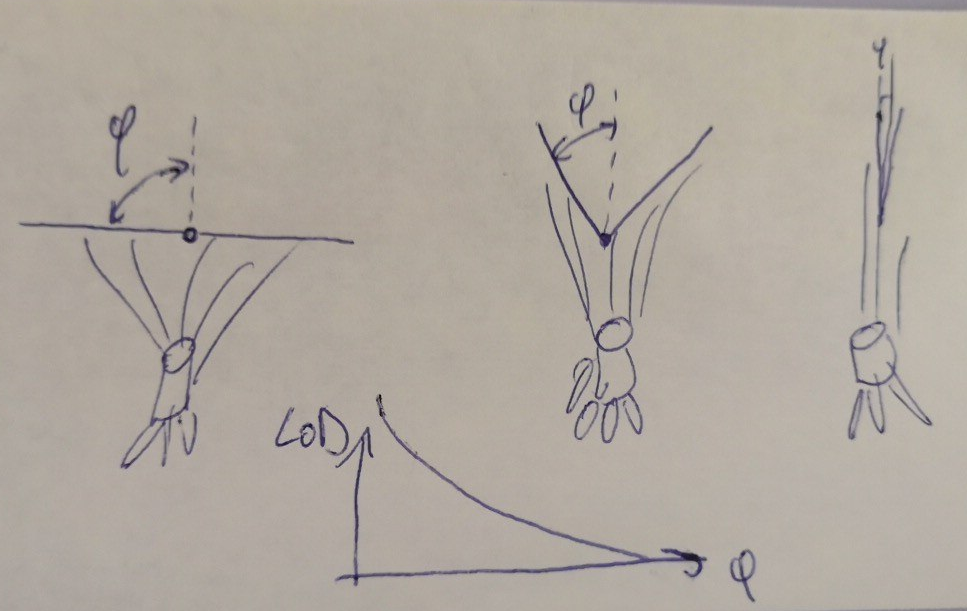 φ
φ
φ
LOD
φ